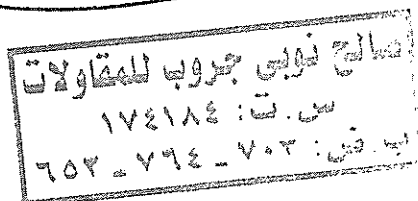 صالح نوبى جروب للمقاولات
س.ت: ١٧٤١٨٤
ب.ض: ٧٠٣ - ٧٦٤ - ٦٥٢